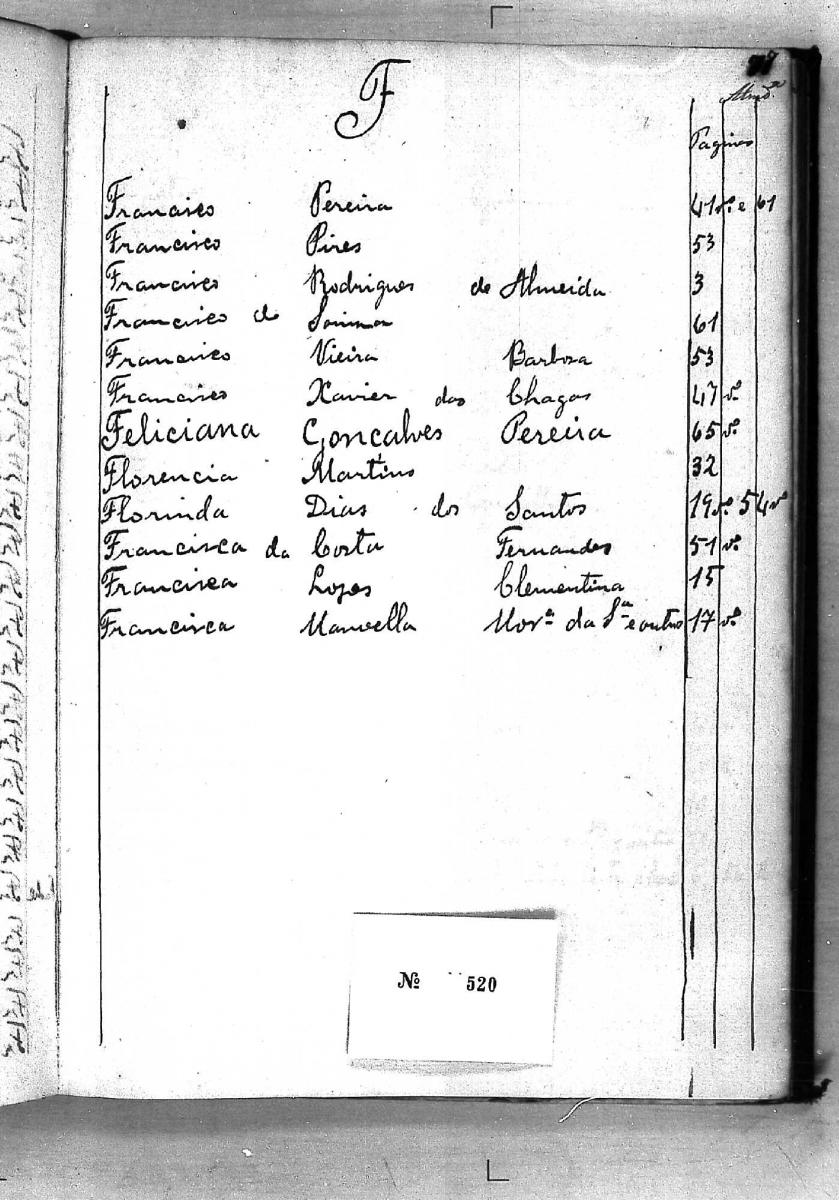 F
Paginas
Francisco Pereira 41 vº e 61
Francisco Pires 53
Francisco Rodrigues de Almeida 3
Francisco de Souza 61
Francisco Vieira Barbosa 53
Francisco Xavier das Chagas 47 vº
Feliciana Gonçalves Pereira 65 vº
Florencia Martins 32
Florinda Dias dos Santos 19 vº 54 vº
Francisca da Costa Fernandes 51 vº
Francisca Lopes Clementina 15
Francisca Manoella Morª da Sª e outros 17 vº
Nº 520